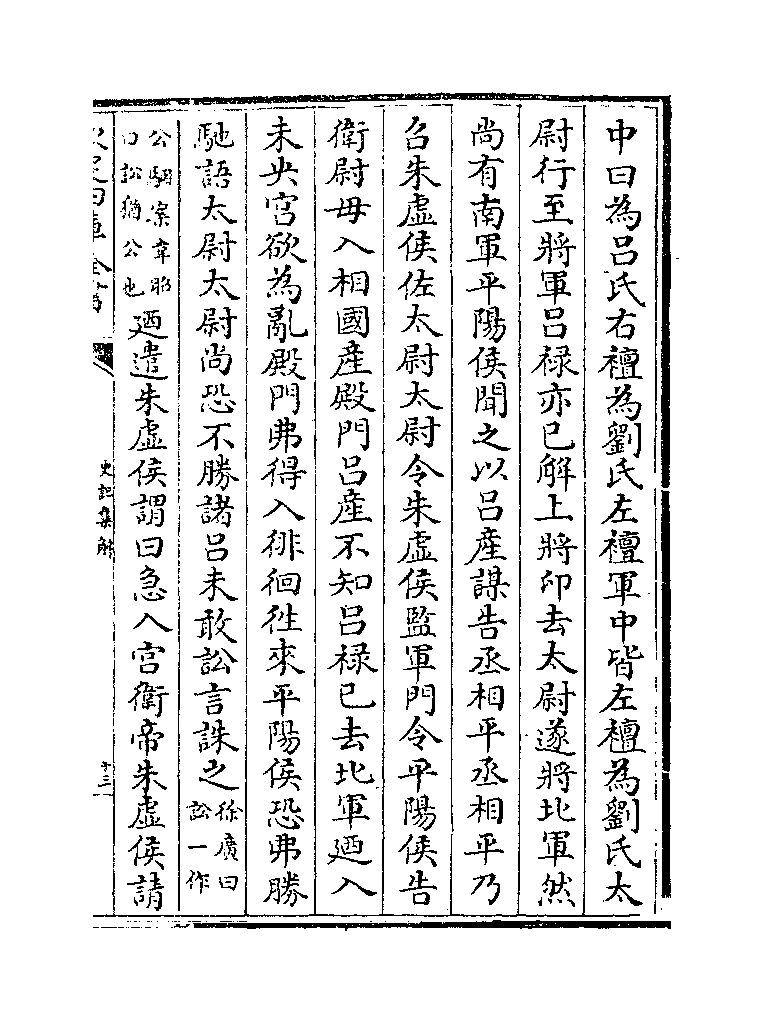 中曰為呂氏右襢為劉氏左襢軍中皆左襢為劉氏太
尉行至將軍呂禄亦已解上將印去太尉遂將北軍然
尚有南軍平陽侯聞之以呂產謀告丞相平丞相平乃
召朱虛侯佐太尉太尉令朱虛侯監軍門令平陽侯告
衛尉毋入相國產殿門呂產不知呂禄已去北軍廼入
未央宮欲為亂殿門弗得入徘徊徃來平陽侯恐弗勝
馳語太尉太尉尚恐不勝諸呂未敢訟言誅之徐廣曰訟一作
公駰案韋昭曰訟猶公也廼遣朱虛侯謂曰急入宮衛帝朱虛侯請
史記集解
十三